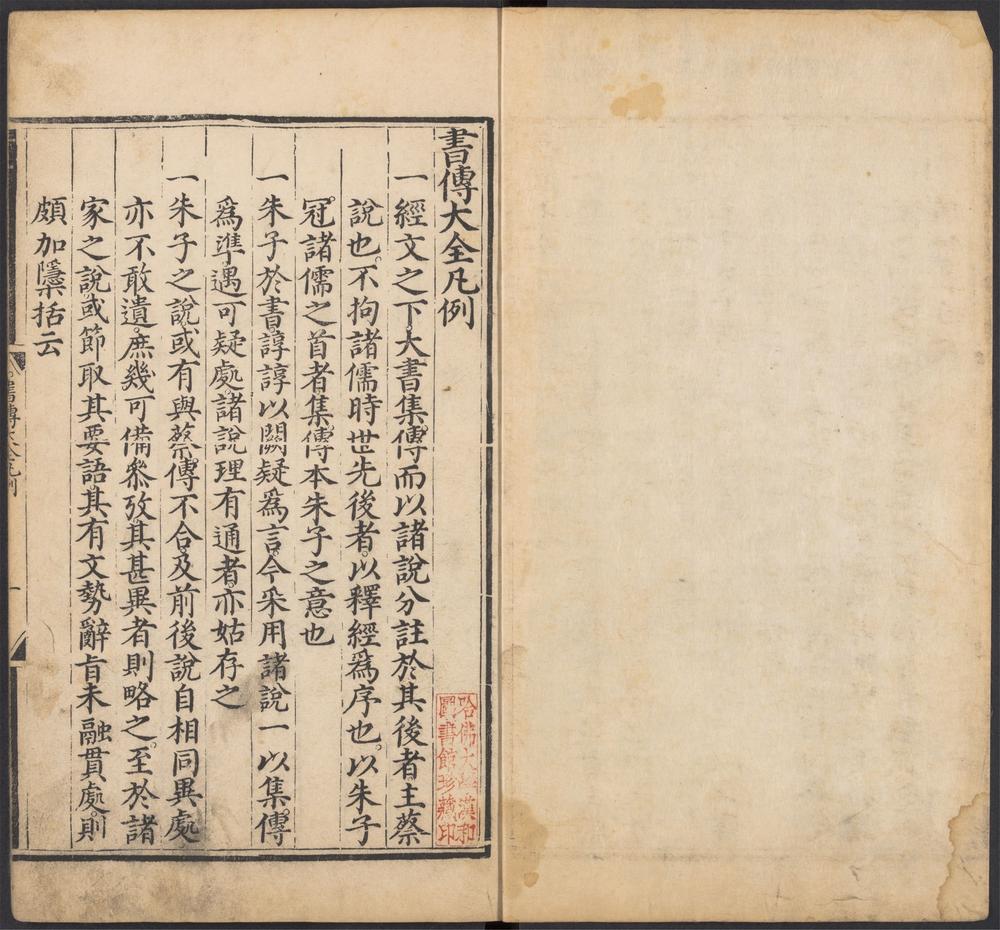 書傳大全凡例
一經文之下大書集傳而以諸說分註於其後者主蔡
說也不拘諸儒時世先後者以釋經爲序也以朱子
冠諸儒之首者集傳本朱子之意也
一朱子於書諄諄以闕疑爲言今采用諸說一以集傳
爲準遇可疑處諸說理有通者亦姑存之
一朱子之說或有與蔡傳不合及前後說自相同異處
亦不敢遺庶幾可備叅攷其甚異者則略之至於諸
家之說或節取其要語其有文勢辭旨未融貫處則
頗加檃括云
書傳大全凡例
一
哈佛大學漢和
圖書館珍藏印